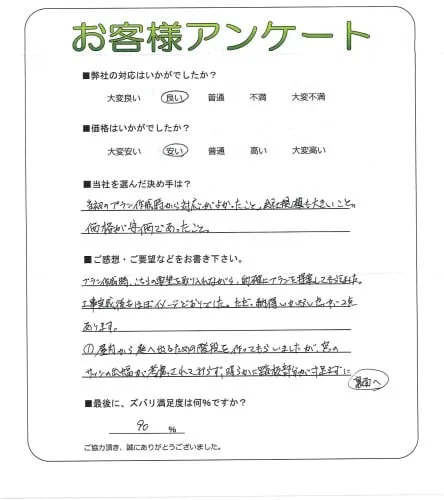 お客様アンケート
■弊社の対応はいかがでしたか?
大変良い 良い 普通 不満 大変不満
■価格はいかがでしたか?
大変安い 安い 普通 高い 大変高い
■当社を選んだ決め手は?
当初のプラン作成時から対応がよかったこと、会社規模も大きいこと。
価格が安価であったこと。
■ご感想・ご要望などをお書き下さい。
プラン作成時、こちらの要望を取り入れながら、的確にプランを提案してもらえました。
工事完成後もほぼイメージどおりでした。ただ、納得しかねる点が2点
あります。
①屋内から庭へ出るための階段を作ってもらいましたが、窓の
サッシの出幅が考慮されておらず、明らかに踏板部分が寸足らずに
裏面へ
■最後に、ズバリ満足度は何%ですか?
90 %
ご協力頂き、誠にありがとうございました。